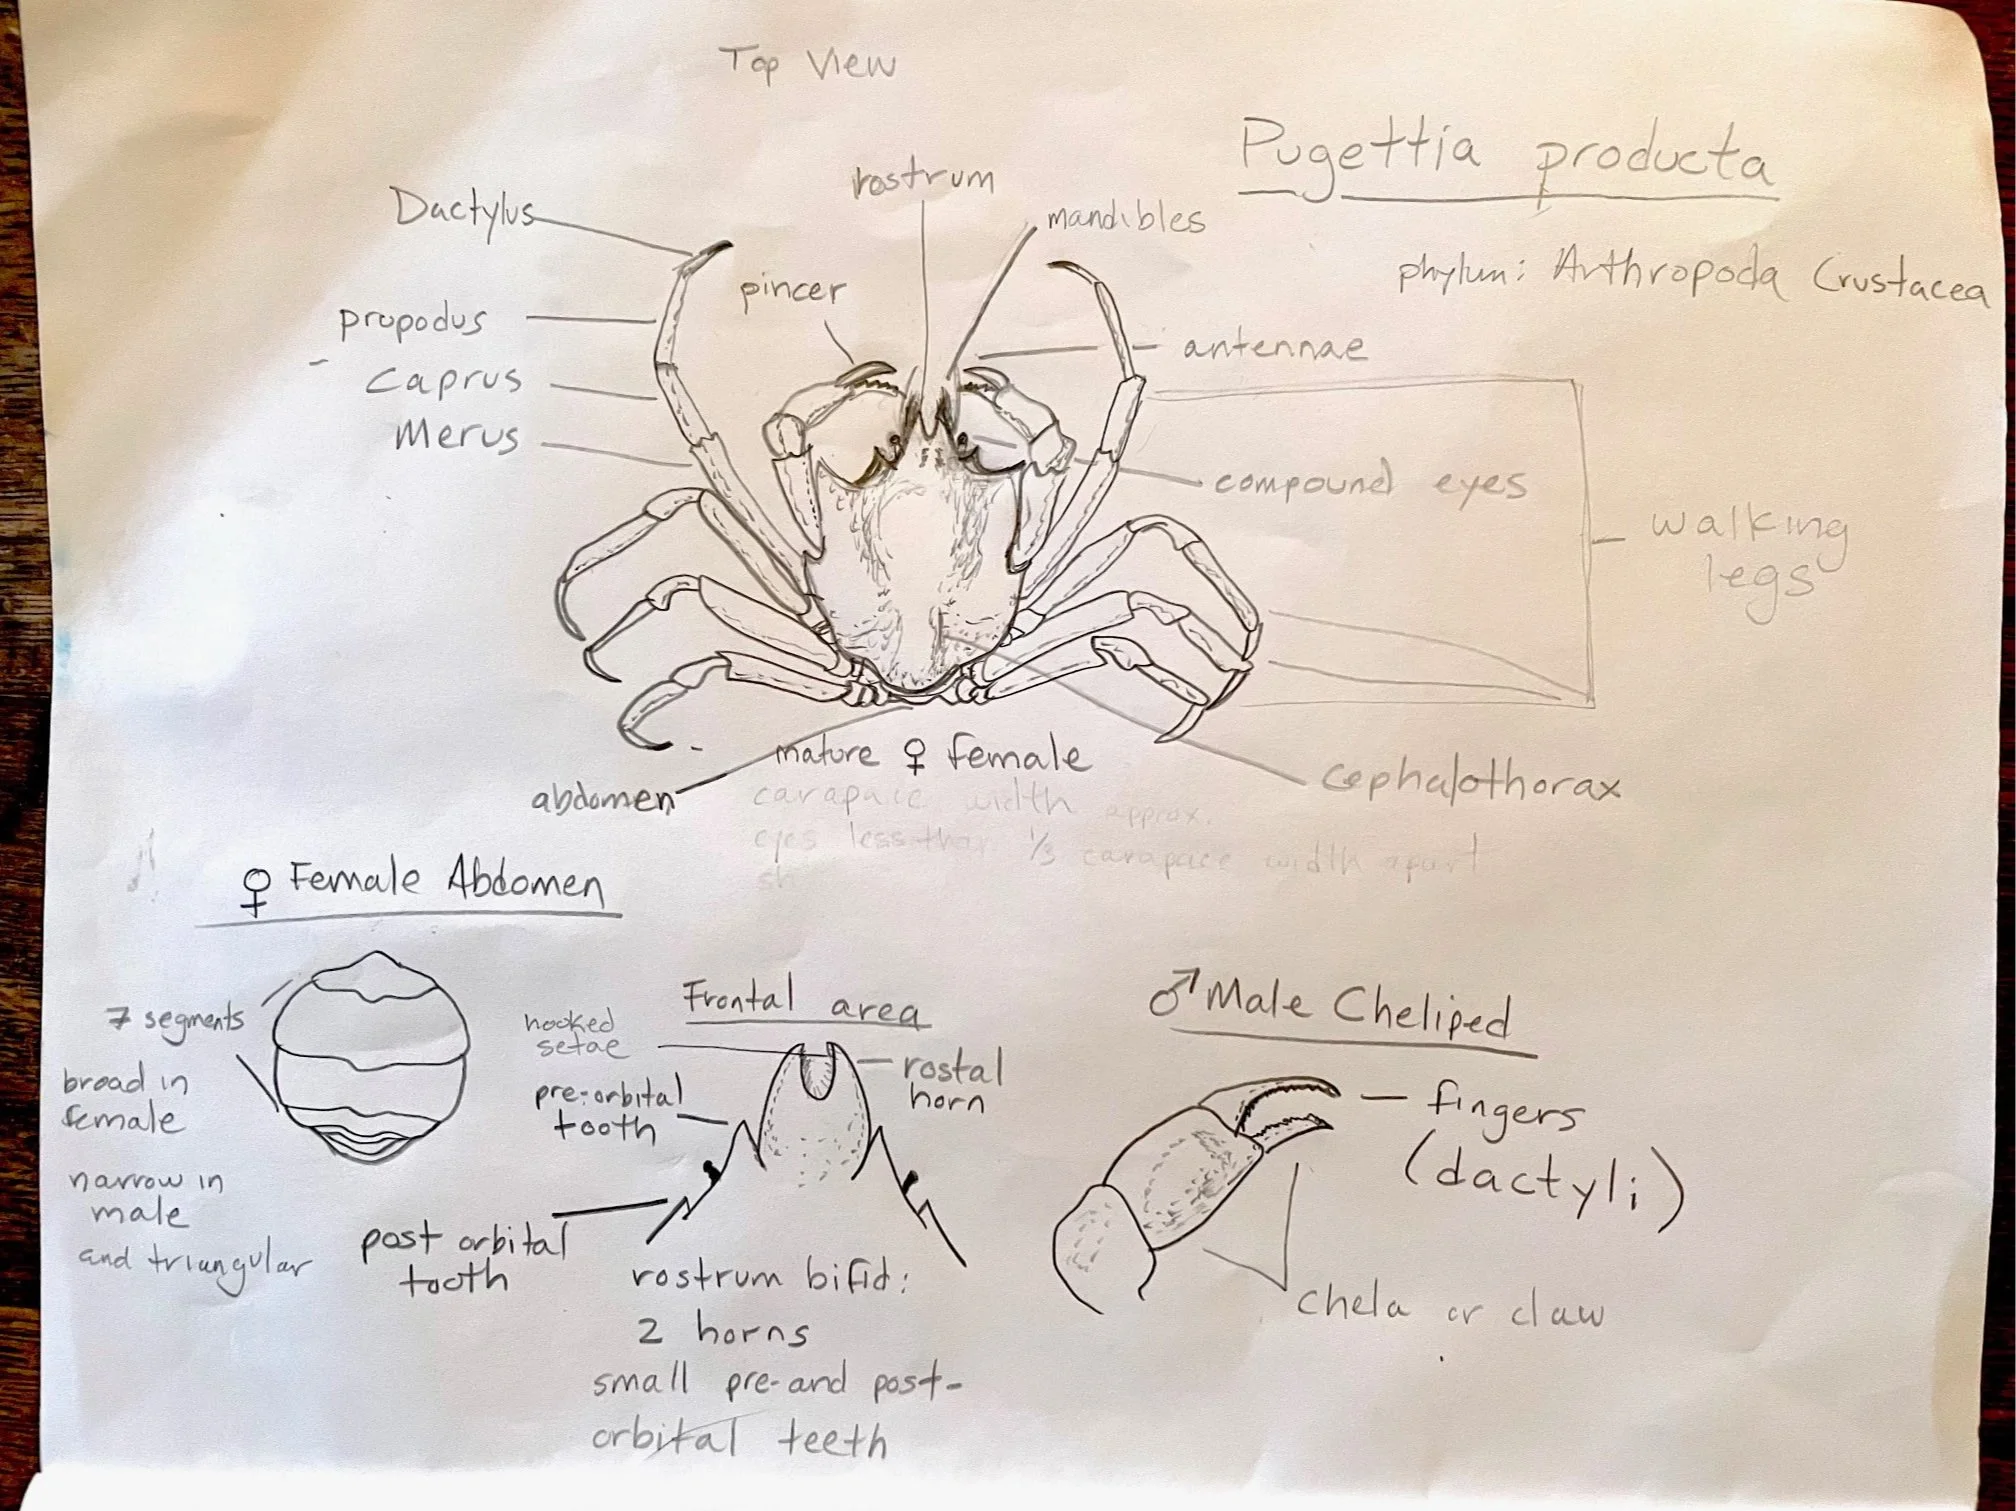 Top View
Pugettia producta
phylum: Arthropoda Crustacea
rostrum
Dactylus
mandibles
pincer
propodus
antennae
Caprus
Merus
compound eyes
walking
legs
mature ♀ female
abdomen
cephalothorax
carapace width approx.
eyes less than 1/3 carapace width apart
♀ Female Abdomen
7 segments
broad in
female
narrow in
male
and triangular
Frontal area
hooked
setae
rostal
horn
pre-orbital
tooth
post orbital
tooth
rostrum bifid:
2 horns
small pre- and post-
orbital teeth
♂ Male Cheliped
fingers
(dactyli)
chela or claw